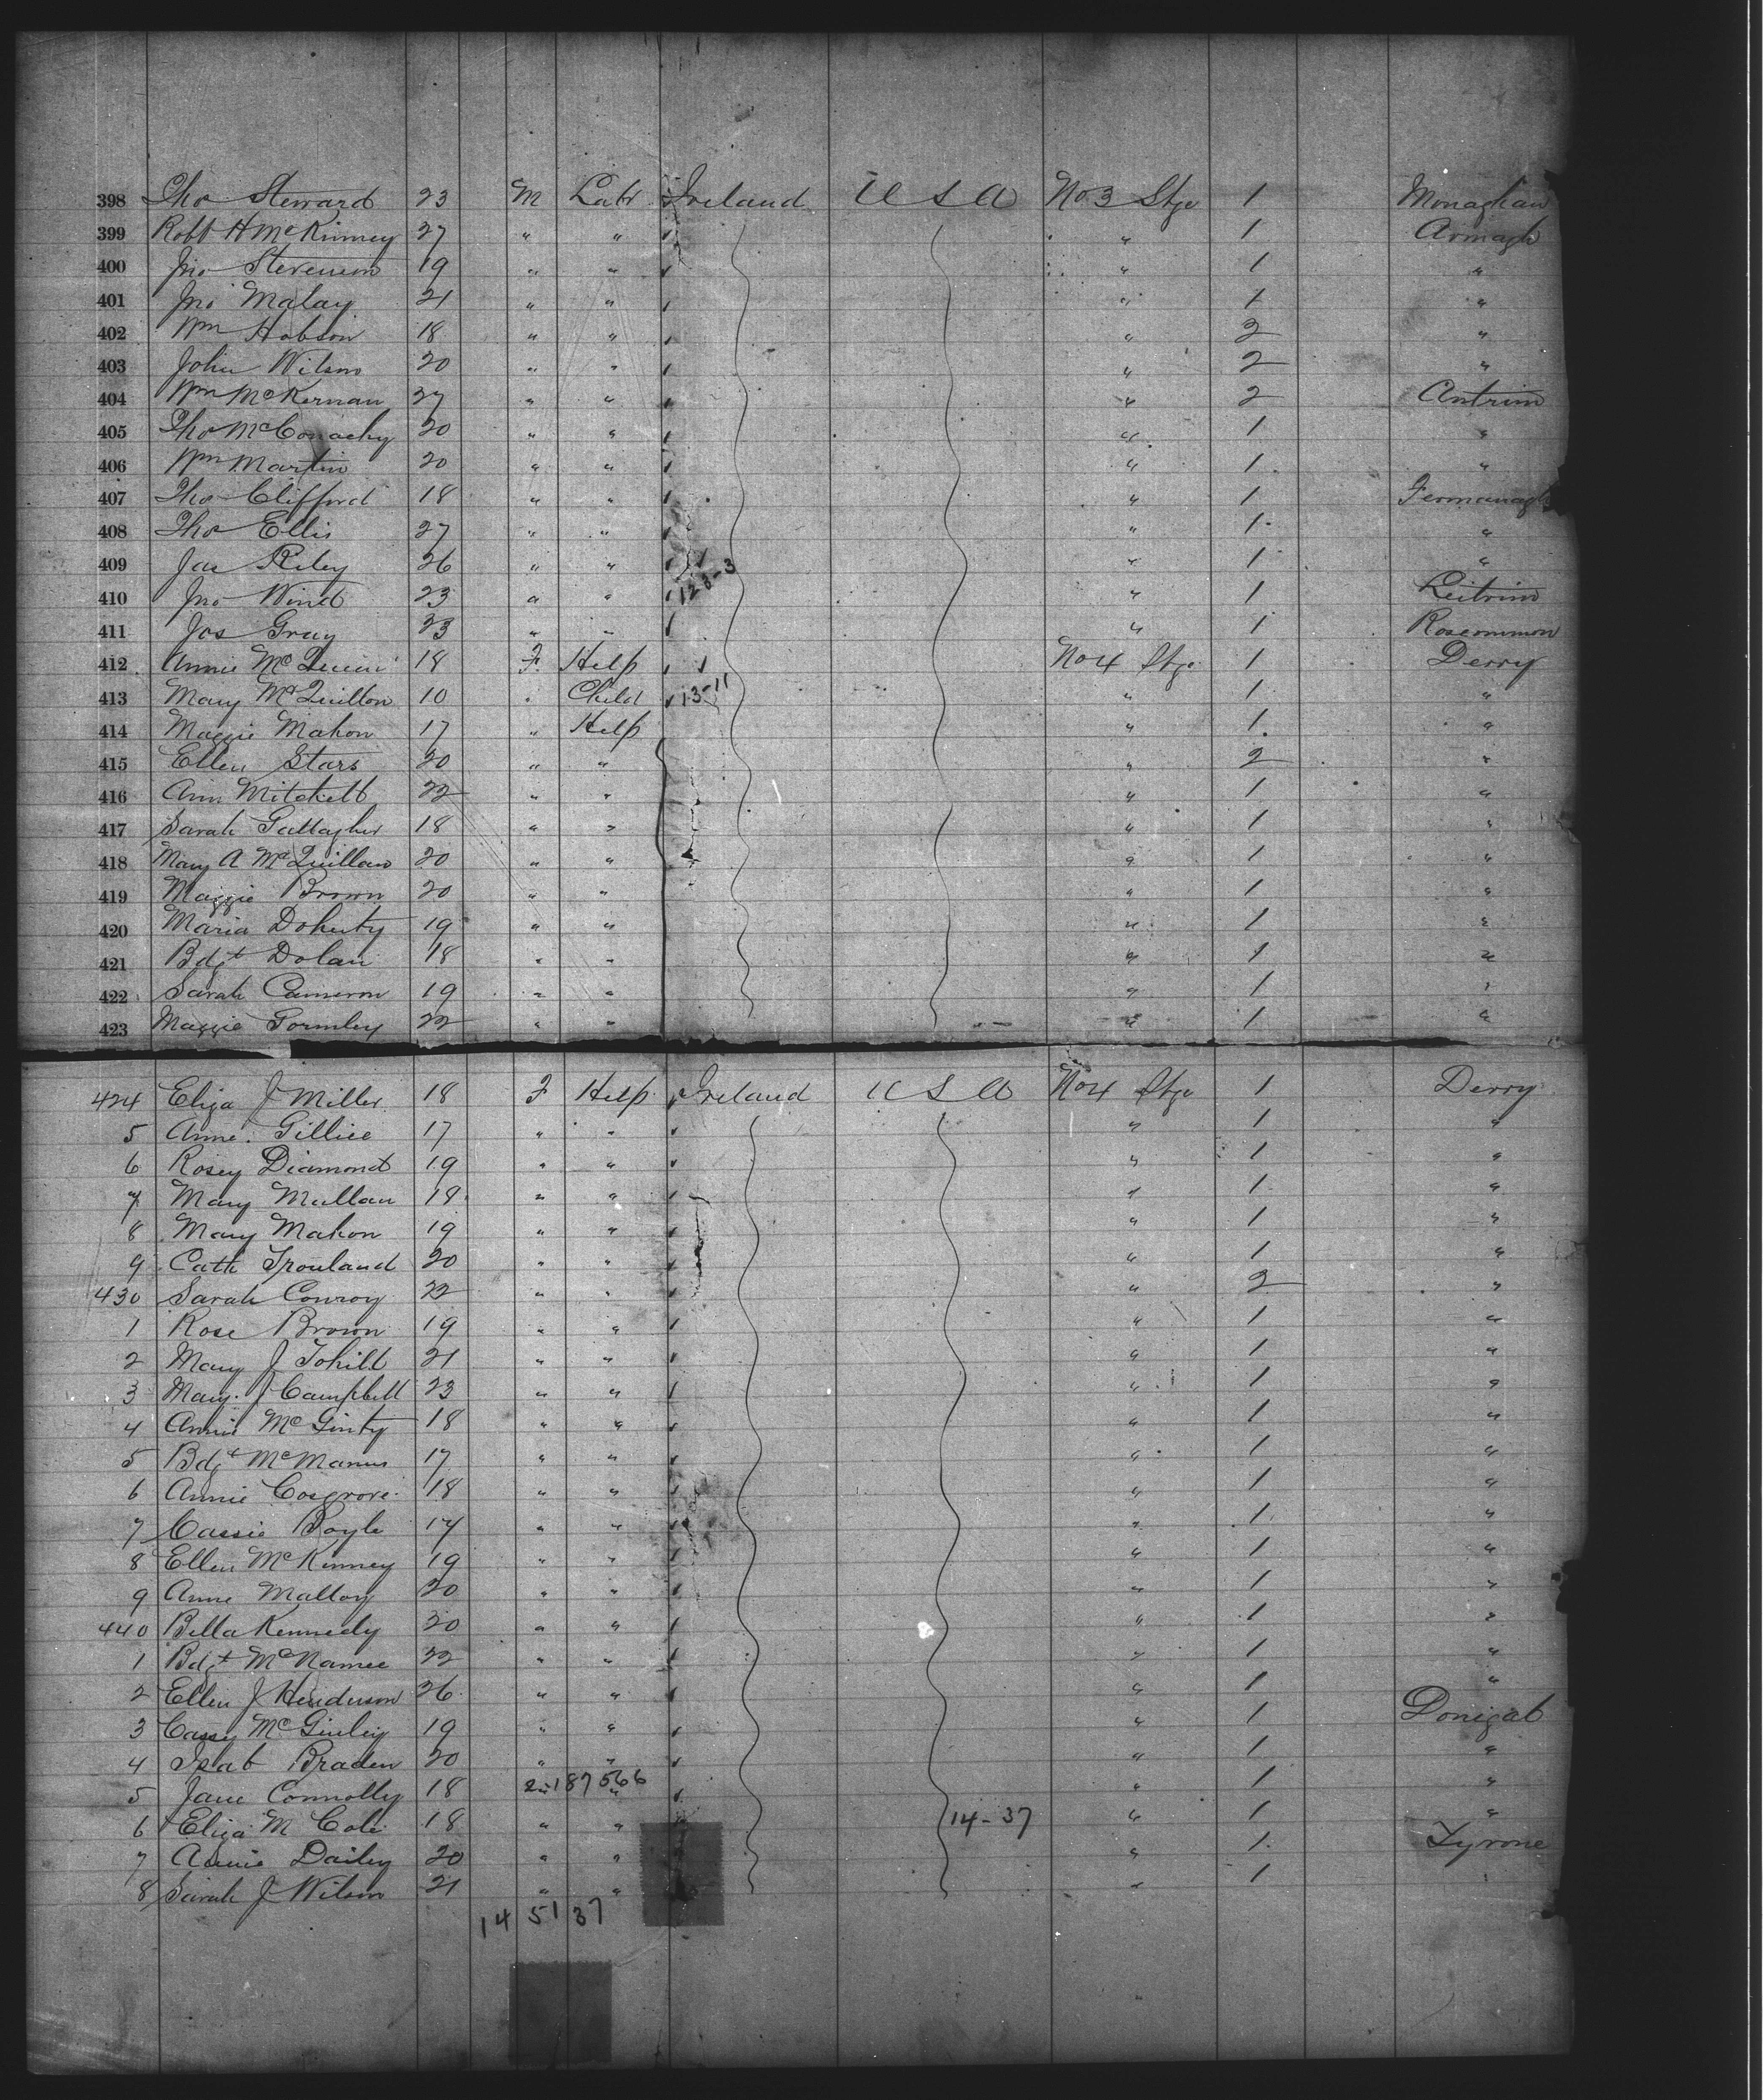 398 Tho Steward 23 M Labr Ireland U S A No 3 Stge 1 Monaghan
399 Robt H McKinney 27 " " " 1 Armagh
400 Jno Stevenson 19 " " " 1 "
401 Jno Malay 21 " " " 1 "
402 Wm Hobson 18 " " " 2 "
403 John Wilson 20 " " " 2 "
404 Wm McKernan 27 " " " 2 Antrim
405 Tho McConachy 20 " " " 1 "
406 Wm Martin 20 " " " 1 "
407 Tho Clifford 18 " " " 1 Fermanagh
408 Tho Ellis 27 " " " 1 "
409 Jas Riley 26 " " " 1 "
410 Jno Wind 23 " " 12 8-3 " 1 Leitrim
411 Jos Gray 23 " " " 1 Roscommon
412 Annie McQuin 18 F Help No 4 Stge 1 Derry
413 Mary McQuillon 10 " Child 13-11 " 1 "
414 Maggie Mahon 17 " Help " 1 "
415 Ellen Stars 20 " " " 2 "
416 Ann Mitchell 22 " " " 1 "
417 Sarah Gallagher 18 " " " 1 "
418 Mary A McQuillan 20 " " " 1 "
419 Maggie Brown 20 " " " 1 "
420 Maria Doherty 19 " " " 1 "
421 Bdgt Dolan 18 " " " 1 "
422 Sarah Cameron 19 " " " 1 "
423 Maggie Gormley 22 " " " 1 "
424 Eliza J Miller 18 F Help Ireland U S A No 4 Stge 1 Derry
5 Anne Gillice 17 " " " 1 "
6 Rosey Diamond 19 " " " 1 "
7 Mary Mullan 18 " " " 1 "
8 Mary Mahon 19 " " " 1 "
9 Cath 20 " " " 1 "
430 Sarah Conroy 22 " " " 2 "
1 Rose Brown 19 " " " 1 "
2 Mary J Tohill 21 " " " 1 "
3 Mary J Campbell 23 " " " 1 "
4 Annie McGinty 18 " " " 1 "
5 Bdgt McManus 17 " " " 1 "
6 Annie Cosgrove 18 " " " 1 "
7 Cassie Boyle 17 " " " 1 "
8 Ellen McKinney 19 " " " 1 "
9 Anne Malloy 20 " " " 1 "
440 Bella Kennedy 20 " " " 1 "
1 Bdgt McNamee 22 " " " 1 "
2 Ellen J Henderson 26 " " " 1 "
3 Cassy McGinley 19 " " " 1 Donigal
4 Isab Braden 20 " " " 1 "
5 Jane Connolly 18 2-187566 " " 1 "
6 Eliza M Cole 18 " " 14-37 " 1 "
7 Annie Dailey 20 " " " 1 Tyrone
8 Sarah J Wilson 21 " " " 1 "
14 51 37